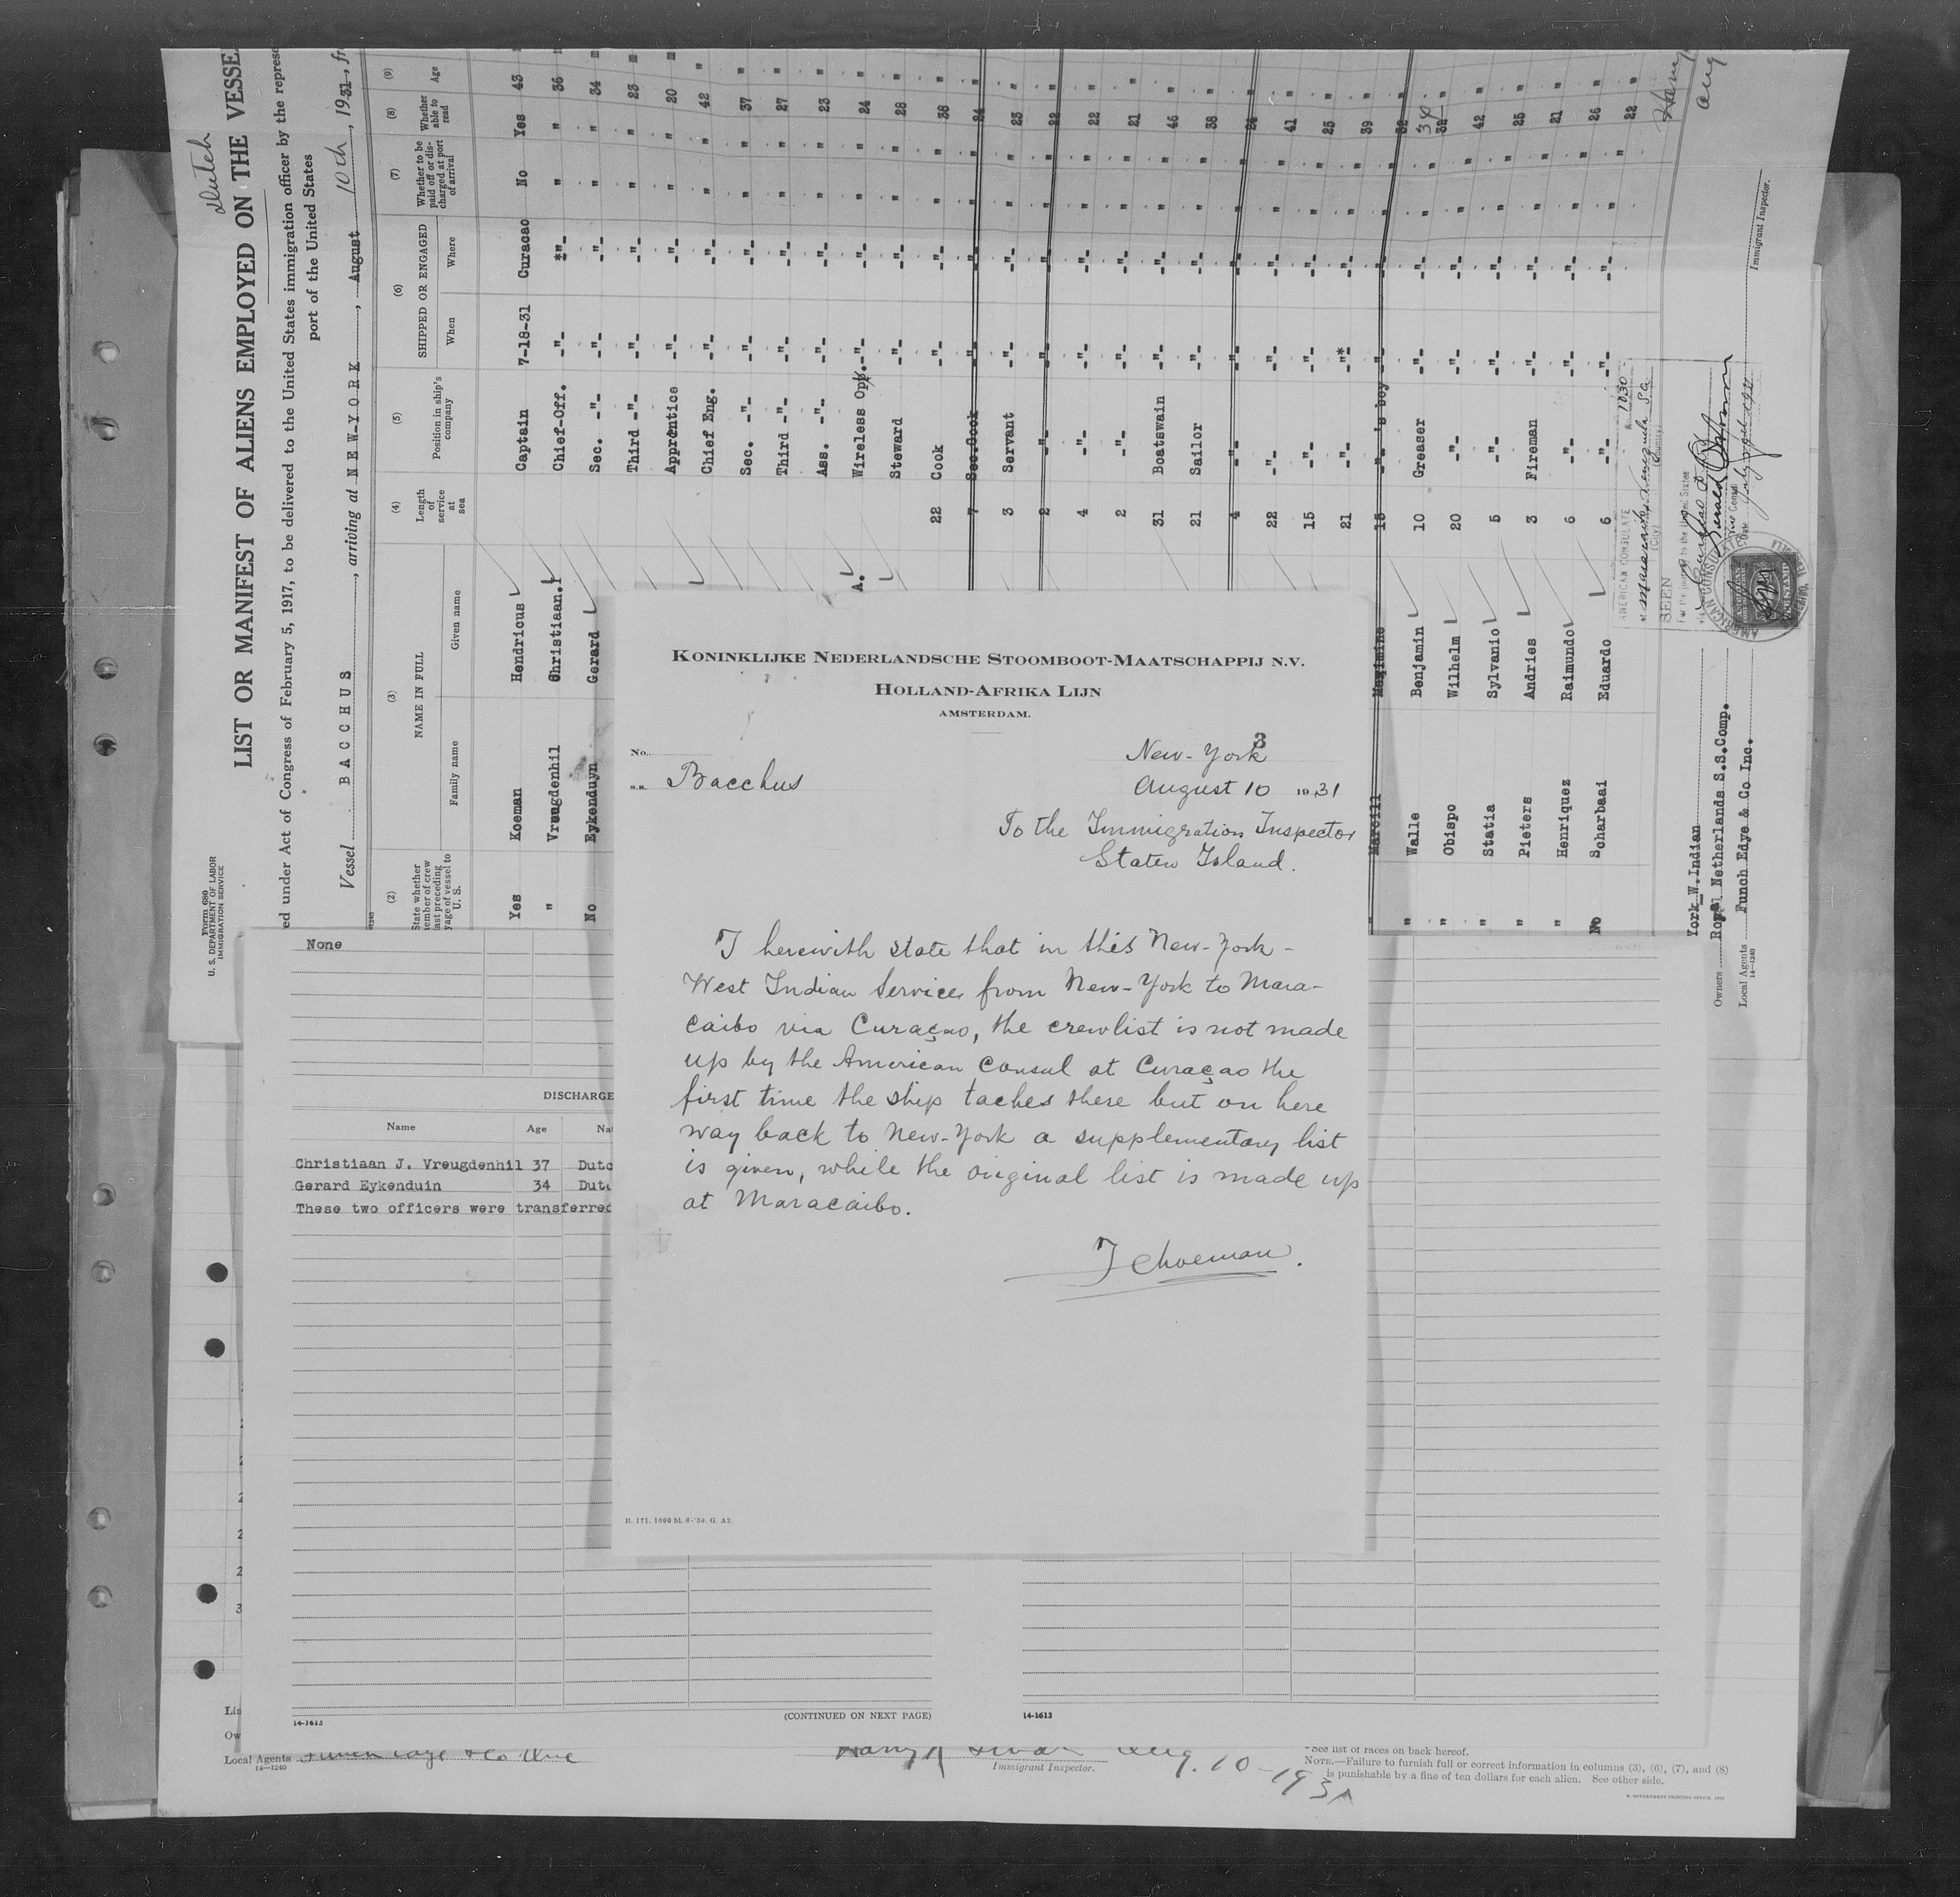 KONINKLIJKE NEDERLANDSCHE STOOMBOOT-MAATSCHAPPIJ N.V.
HOLLAND-AFRIKA LIJN
AMSTERDAM.
No.
3
New-York
s.s. Bacchus
August 10 1931
To the Immigration Inspector
Staten Island.
I herewith state that in this New-York-
West Indian Service from New-York to Mara-
caibo via Curaçao, the crewlist is not made
up by the American Consul at Curaçao the
first time the ship taches there but on here
way back to New-York a supplementary list
is given, while the original list is made up
at Maracaibo.
B. 171. 1000 bl. 6-'30. G. A2.
Form 680
U. S. DEPARTMENT OF LABOR
IMMIGRATION SERVICE
Dutch
LIST OR MANIFEST OF ALIENS EMPLOYED ON THE VESSE
ed under Act of Congress of February 5, 1917, to be delivered to the United States immigration officer by the repres
port of the United States
Vessel BACCHUS, arriving at NEW-YORK, August 10th, 1931, fr
(2) (3) (4) (5) (6) (7) (8) (9)
State whether member of crew last preceding voyage of vessel to U. S.
NAME IN FULL
Family name Given name
Length of service at sea
Position in ship's company
SHIPPED OR ENGAGED
When Where
Whether to be paid off or discharged at port of arrival
Whether able to read
Age
Yes Koeman Hendricus Captain 7-18-31 Curacao No Yes 43
" Vreugdenhil Christiaan.J Chief-Off. -"- -"- " " 36
No Eykenduyn Gerard Sec. -"- -"- -"- " " 34
Third -"- -"- -"- " " 23
Apprentice -"- -"- " " 20
Chief Eng. -"- -"- " " 42
Sec. -"- -"- -"- " " 37
Third -"- -"- -"- " " 27
Ass. -"- -"- -"- " " 23
A. Wireless Opp. -"- -"- " " 24
Steward -"- -"- " " 28
22 Cook -"- -"- " " 38
7 Sec.Cook -"- -"- " " 24
3 Servant -"- -"- " " 23
2 -"- -"- -"- " " 22
4 -"- -"- -"- " " 22
2 -"- -"- -"- " " 21
31 Boatswain -"- -"- " " 46
21 Sailor -"- -"- " " 38
4 -"- -"- -"- " " 24
22 -"- -"- -"- " " 41
15 -"- -"- -"- " " 25
21 -"- -"- -"- " " 39
" 15 -"- 's boy -"- -"- " " 32
" Walle Benjamin 10 Greaser -"- -"- " " 38
" Obispo Wilhelm 20 -"- -"- -"- " " 42
" Statia Sylvanio 5 -"- -"- -"- " " 25
" Pieters Andries 3 Fireman -"- -"- " " 21
" Henriquez Raimundo 6 -"- -"- -"- " " 26
No Scharbaai Eduardo 6 -"- -"- -"- " " 22
York W.Indian
Owners Royal Netherlands S.S.Comp.
Local Agents Funch Edye & Co Inc.
14-1240
Immigrant Inspector.
AMERICAN CONSULATE
SEEN
None
DISCHARGE
Name Age Nat
Christiaan J. Vreugdenhil 37 Dutc
Gerard Eykenduin 34 Dutc
These two officers were transferred
14-1613
(CONTINUED ON NEXT PAGE)
14-1613
Lin
Ow
Local Agents
14-1240
Immigrant Inspector.
Aug. 10-1931
See list of races on back hereof.
NOTE.—Failure to furnish full or correct information in columns (3), (6), (7), and (8)
is punishable by a fine of ten dollars for each alien. See other side.